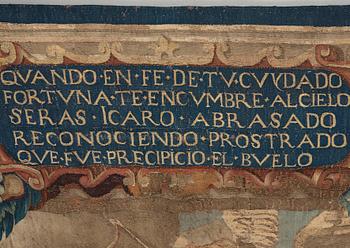 QVANDO·EN·FE·DE·TV·CVYDADO
FORTVNA·TE·ENCVMBRE·AL·CIELO
SERAS·ICARO·ABRASADO
RECONOCIENDO·PROSTRADO
QVE·FVE·PRECIPICIO·EL·BVELO